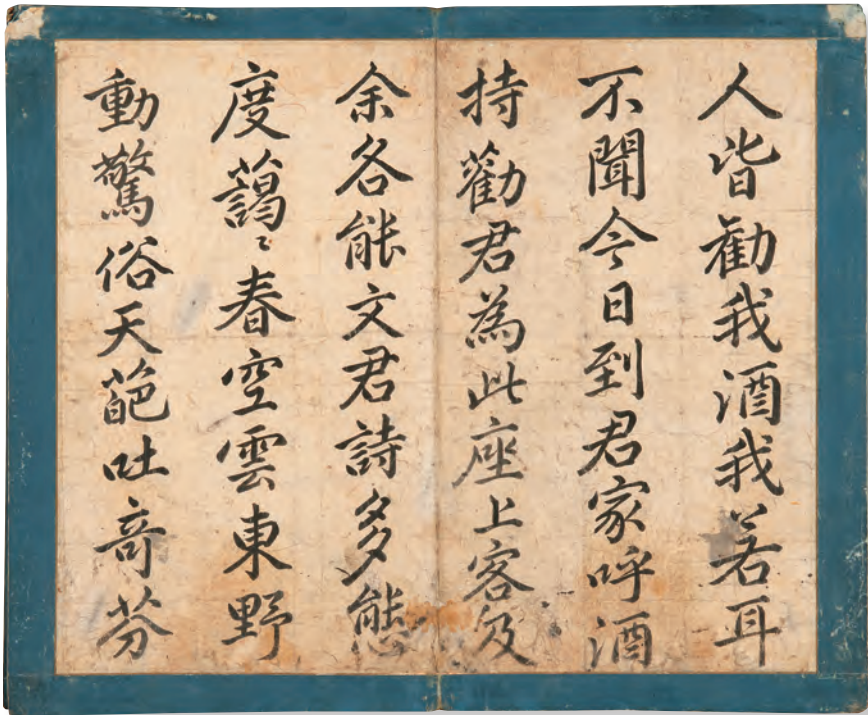 人皆勸我酒我若耳
不聞今日到君家呼酒
持勸君為此座上客及
余各能文君詩多態
度藹〻春空雲東野
動驚俗天葩吐奇芬